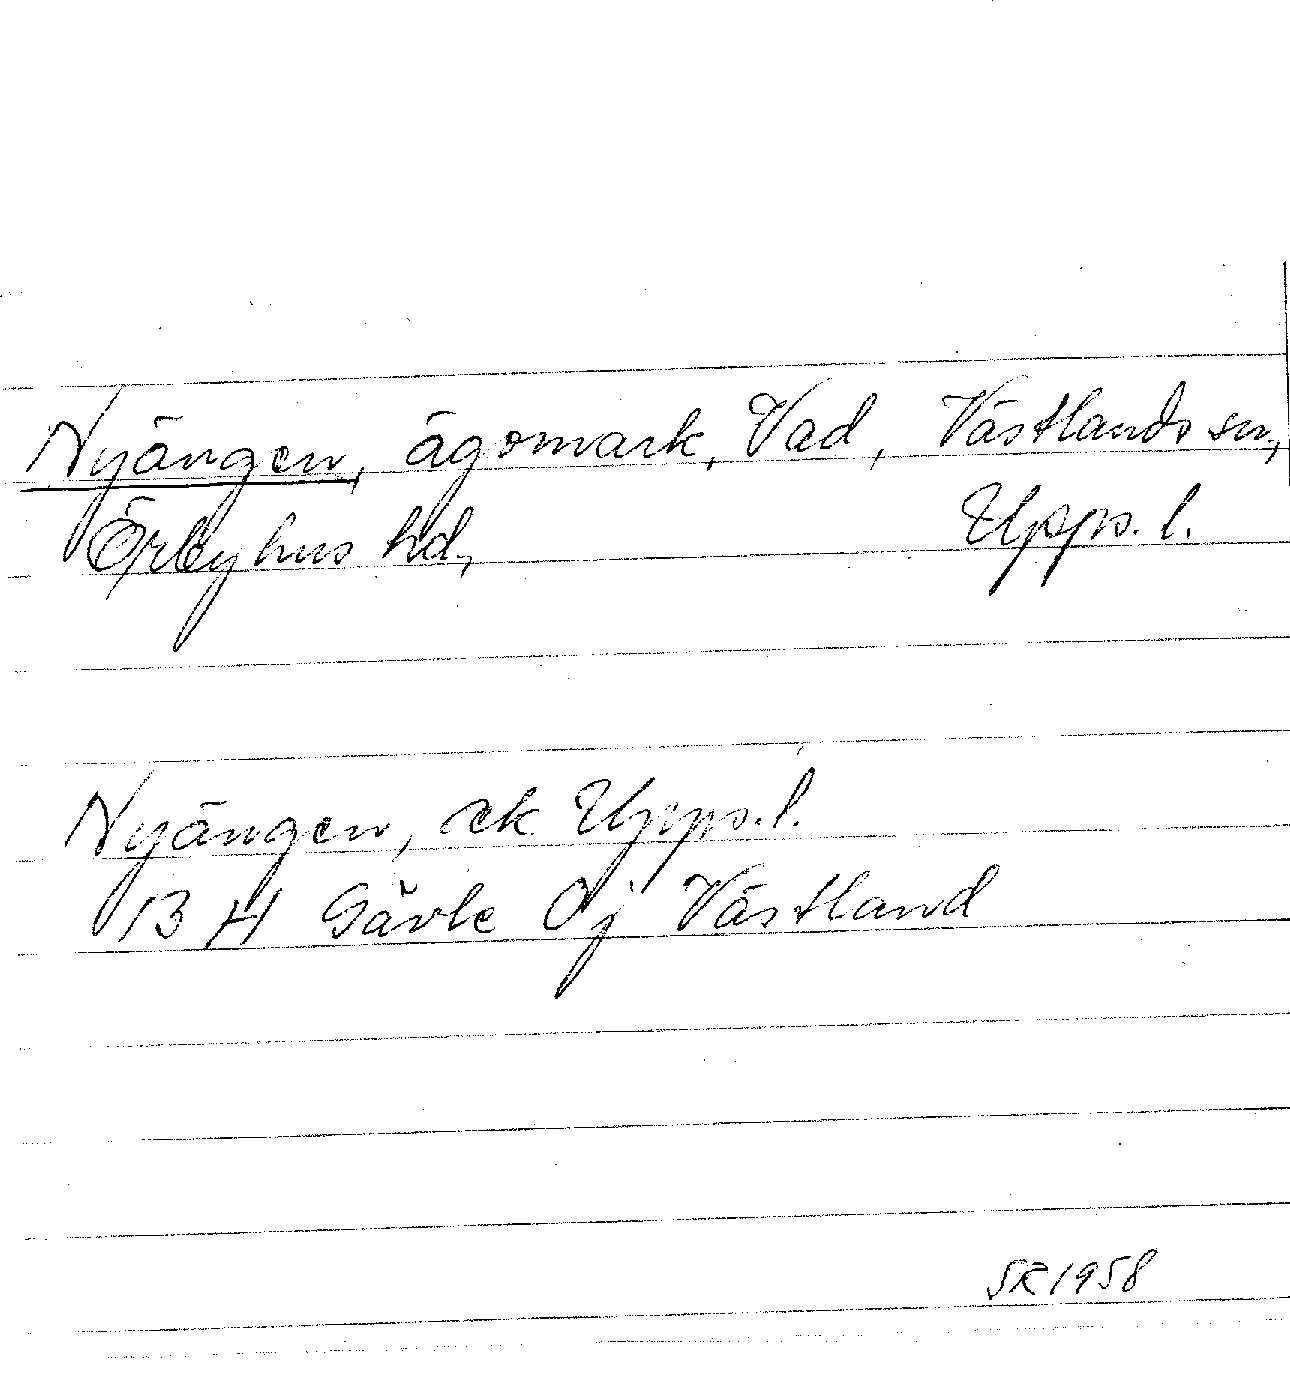 Nyängen, ägomark, Vad, Västlands sn,
Örbyhus hd, Upps. l.
Nyängen, ek Upps. l.
13 H Gävle Oj Västland
SR 1958